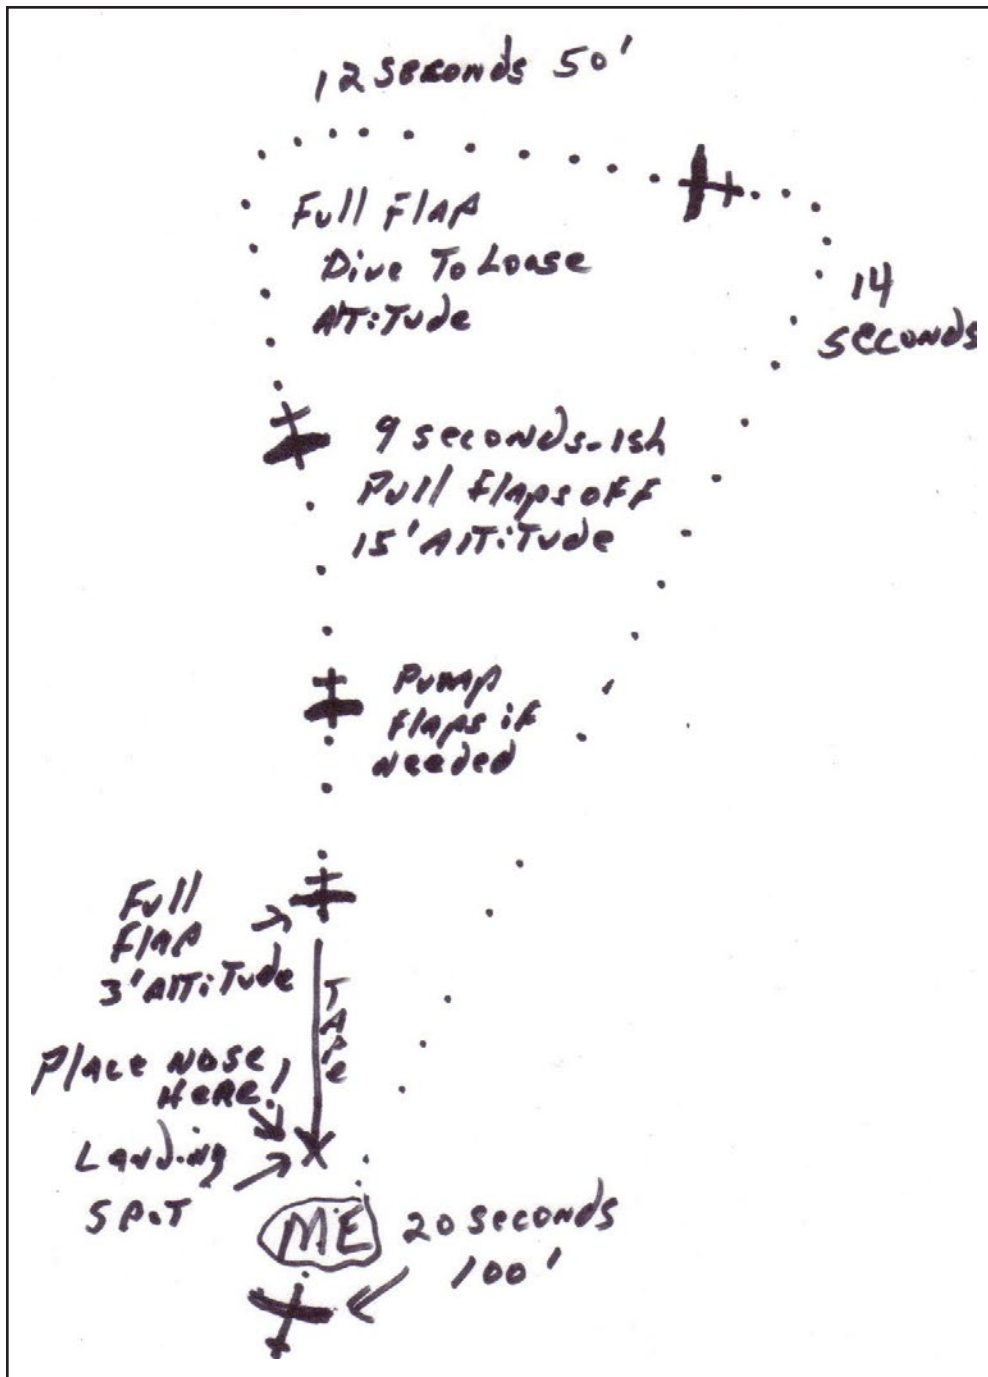 12 seconds 50'
Full Flap
Dive To Loose
AlTiTude
14
seconds
9 seconds-ish
Pull flaps off
15' AlTiTude
Pump
flaps if
needed
Full
Flap
3' AlTiTude
TAPe
Place Nose
Here!
Landing
SpoT
ME
20 seconds
100'